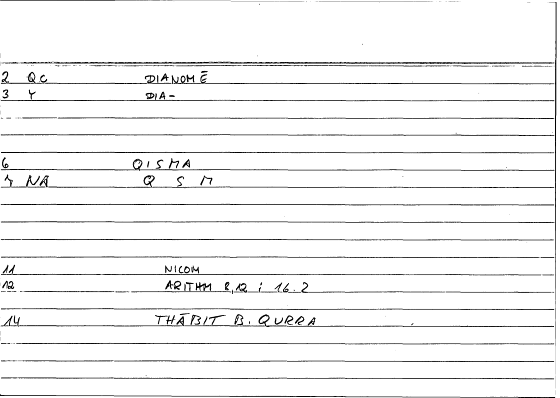 2 QC DIANOMĒ
3 Y DIA-
6 QISMA
7 NA Q S M
11 NICOM
12 ARITHM 8,12 ; 16.2
14 THĀBIT B. QURRA